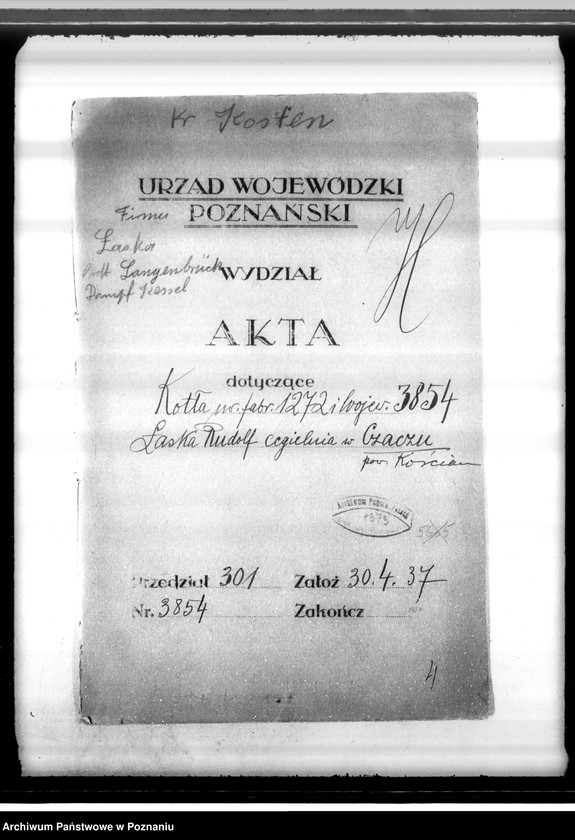 Kr Kosten
URZĄD WOJEWÓDZKI
POZNAŃSKI
Firma
Laska
Langenbrück
Dampf Kessel
WYDZIAŁ
AKTA
dotyczące
Kotła nr. fabr. 1272 i wojew. 3854
Laska Rudolf cegielnia w Czaczu
pow. Kościan
Archiwum Państwowe
Przedział 301 Założ 30.4.37
Nr. 3854 Zakończ
4
Archiwum Państwowe w Poznaniu